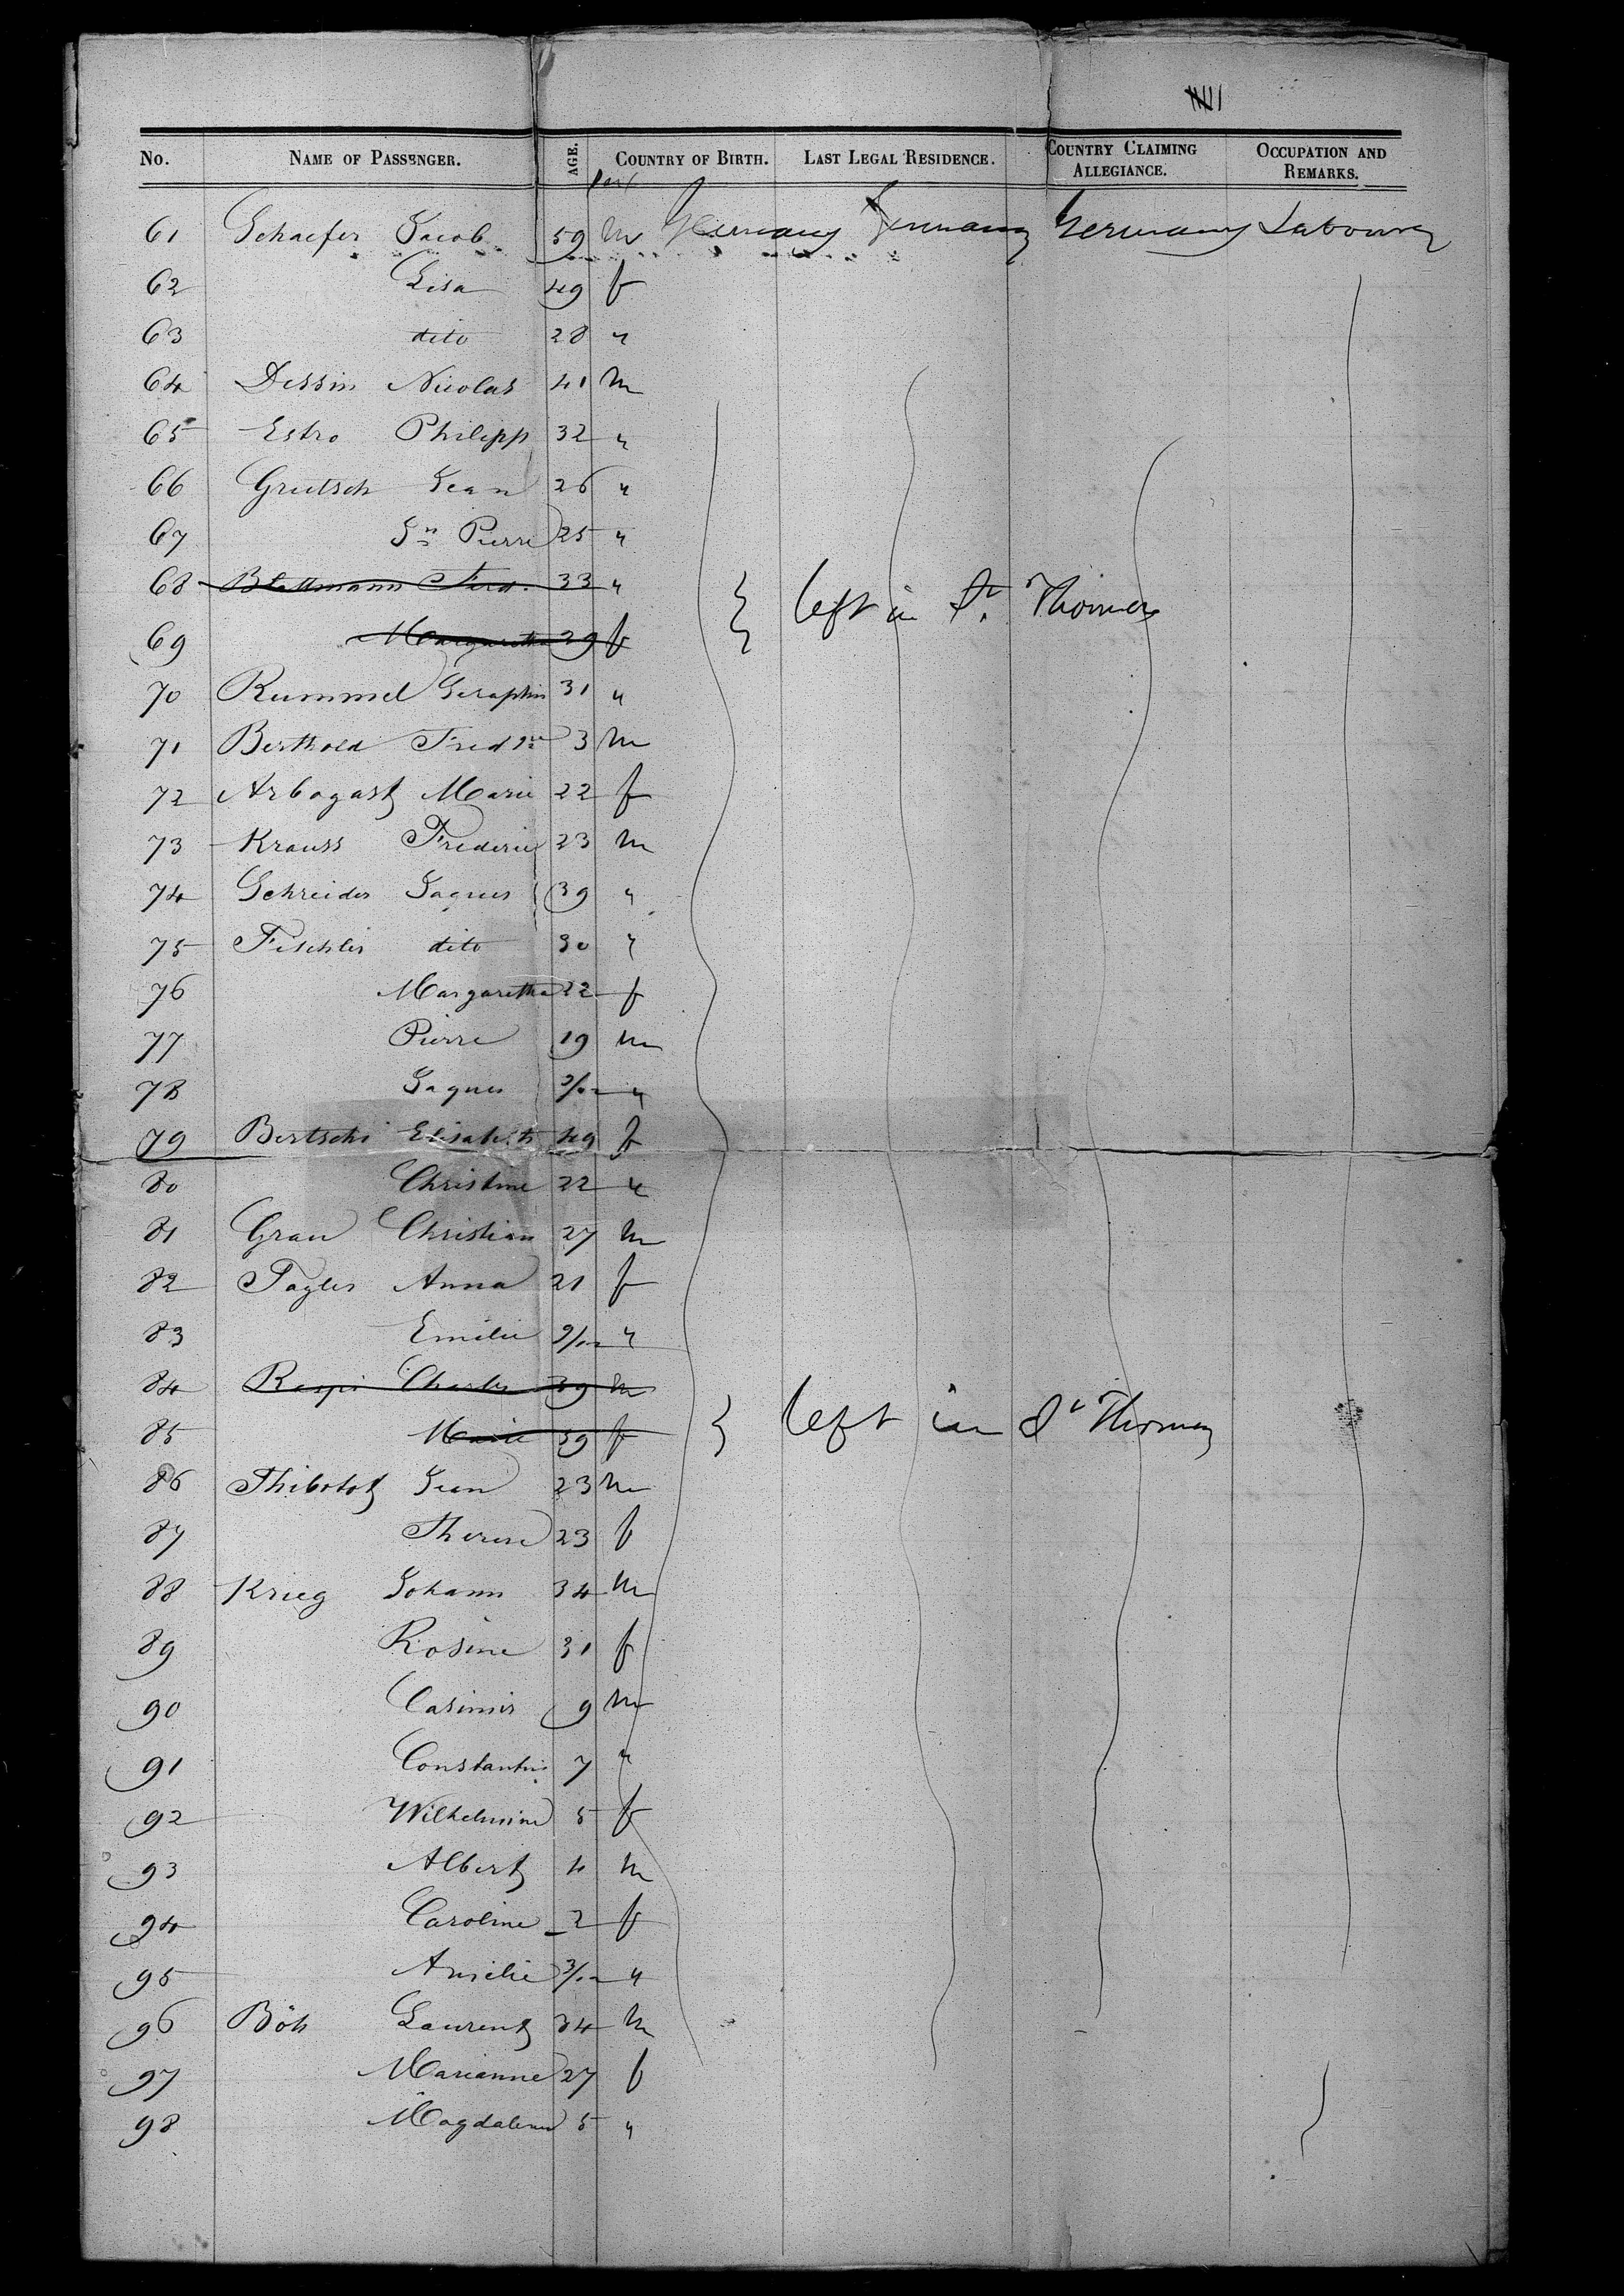 No. NAME OF PASSENGER. AGE. COUNTRY OF BIRTH. LAST LEGAL RESIDENCE. COUNTRY CLAIMING ALLEGIANCE. OCCUPATION AND REMARKS.
61 Schaefer Jacob 59 m Germany Germany Germany Labourer
62 Lisa 49 f
63 dito 28 "
64 Dessin Nicolas 41 m
65 Estro Philipp 32 "
66 Grutsch Jean 26 "
67 Jn Pierre 25 "
68 Blattmann Ferd. 33 "
left in St. Thomas
69 Margaretha 29 f
70 Rummel Seraphin 31 "
71 Berthold Fred 3 m
72 Arbogast Marie 22 f
73 Krauss Frederic 23 m
74 Schreider Jaques 39 "
75 Fischler dito 30 "
76 Margaretha 22 f
77 Pierre 19 m
78 Jaques "
79 Bertschi Elisabeth 49 f
80 Christine 22 "
81 Grau Christian 27 m
82 Fagler Anna 21 f
83 Emilie 9/12 "
84 Raspi Charles 39 m
85 Marie 39 f left in St Thomas
86 Thibolot Jean 23 m
87 Therese 23 f
88 Krieg Johann 34 m
89 Rosine 31 f
90 Casimir 9 m
91 Constantin 7 "
92 Wilhelmine 5 f
93 Albert 4 m
94 Caroline 2 f
95 Amelie 3/12 "
96 Böh Laurent 34 m
97 Marianne 27 f
98 Magdalena 5 "